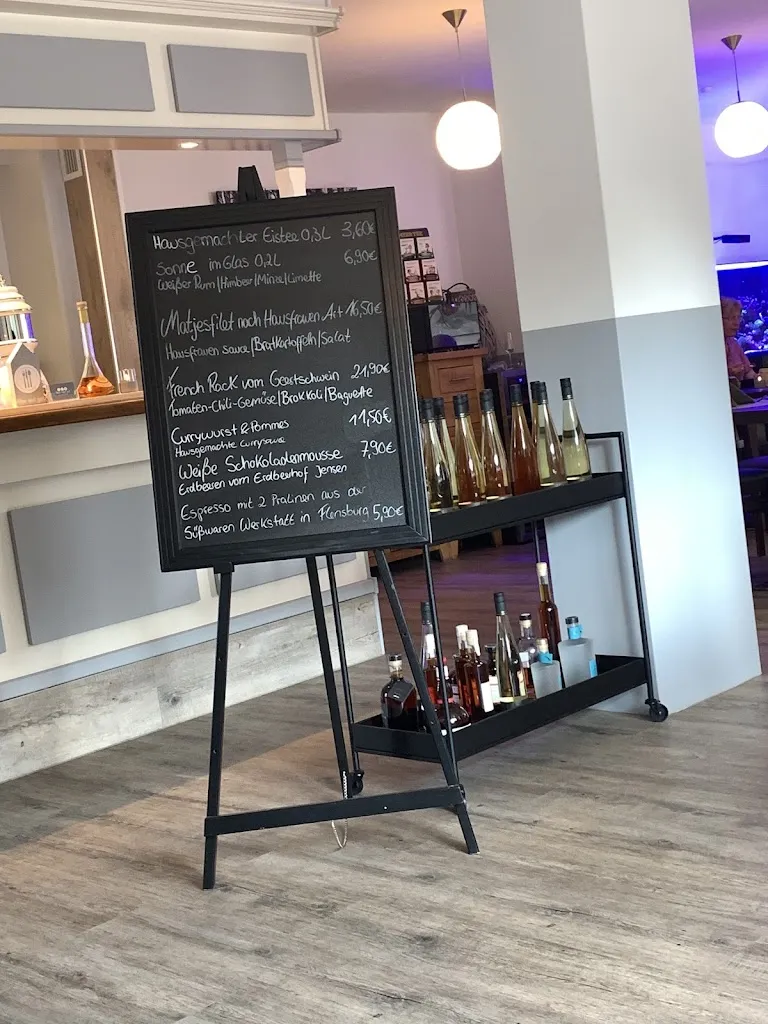 Hausgemachter Eistee 0,3L 3,60€
Sonne im Glas 0,2L 6,90€
Weißer Rum/Himbeer/Minze/Limette
Matjesfilet nach Hausfrauen Art 16,50€
Hausfrauen sauce/Bratkartoffeln/Salat
French Rack vom Geestschwein 21,90€
Tomaten-Chili-Gemüse/Brokkoli/Baguette
Currywurst & Pommes 11,50€
Hausgemachte Currysauce
Weiße Schokoladenmousse 7,90€
Erdbeeren vom Erdbeerhof Jensen
Espresso mit 2 Pralinen aus der
Süßwaren Werkstatt in Flensburg 5,90€